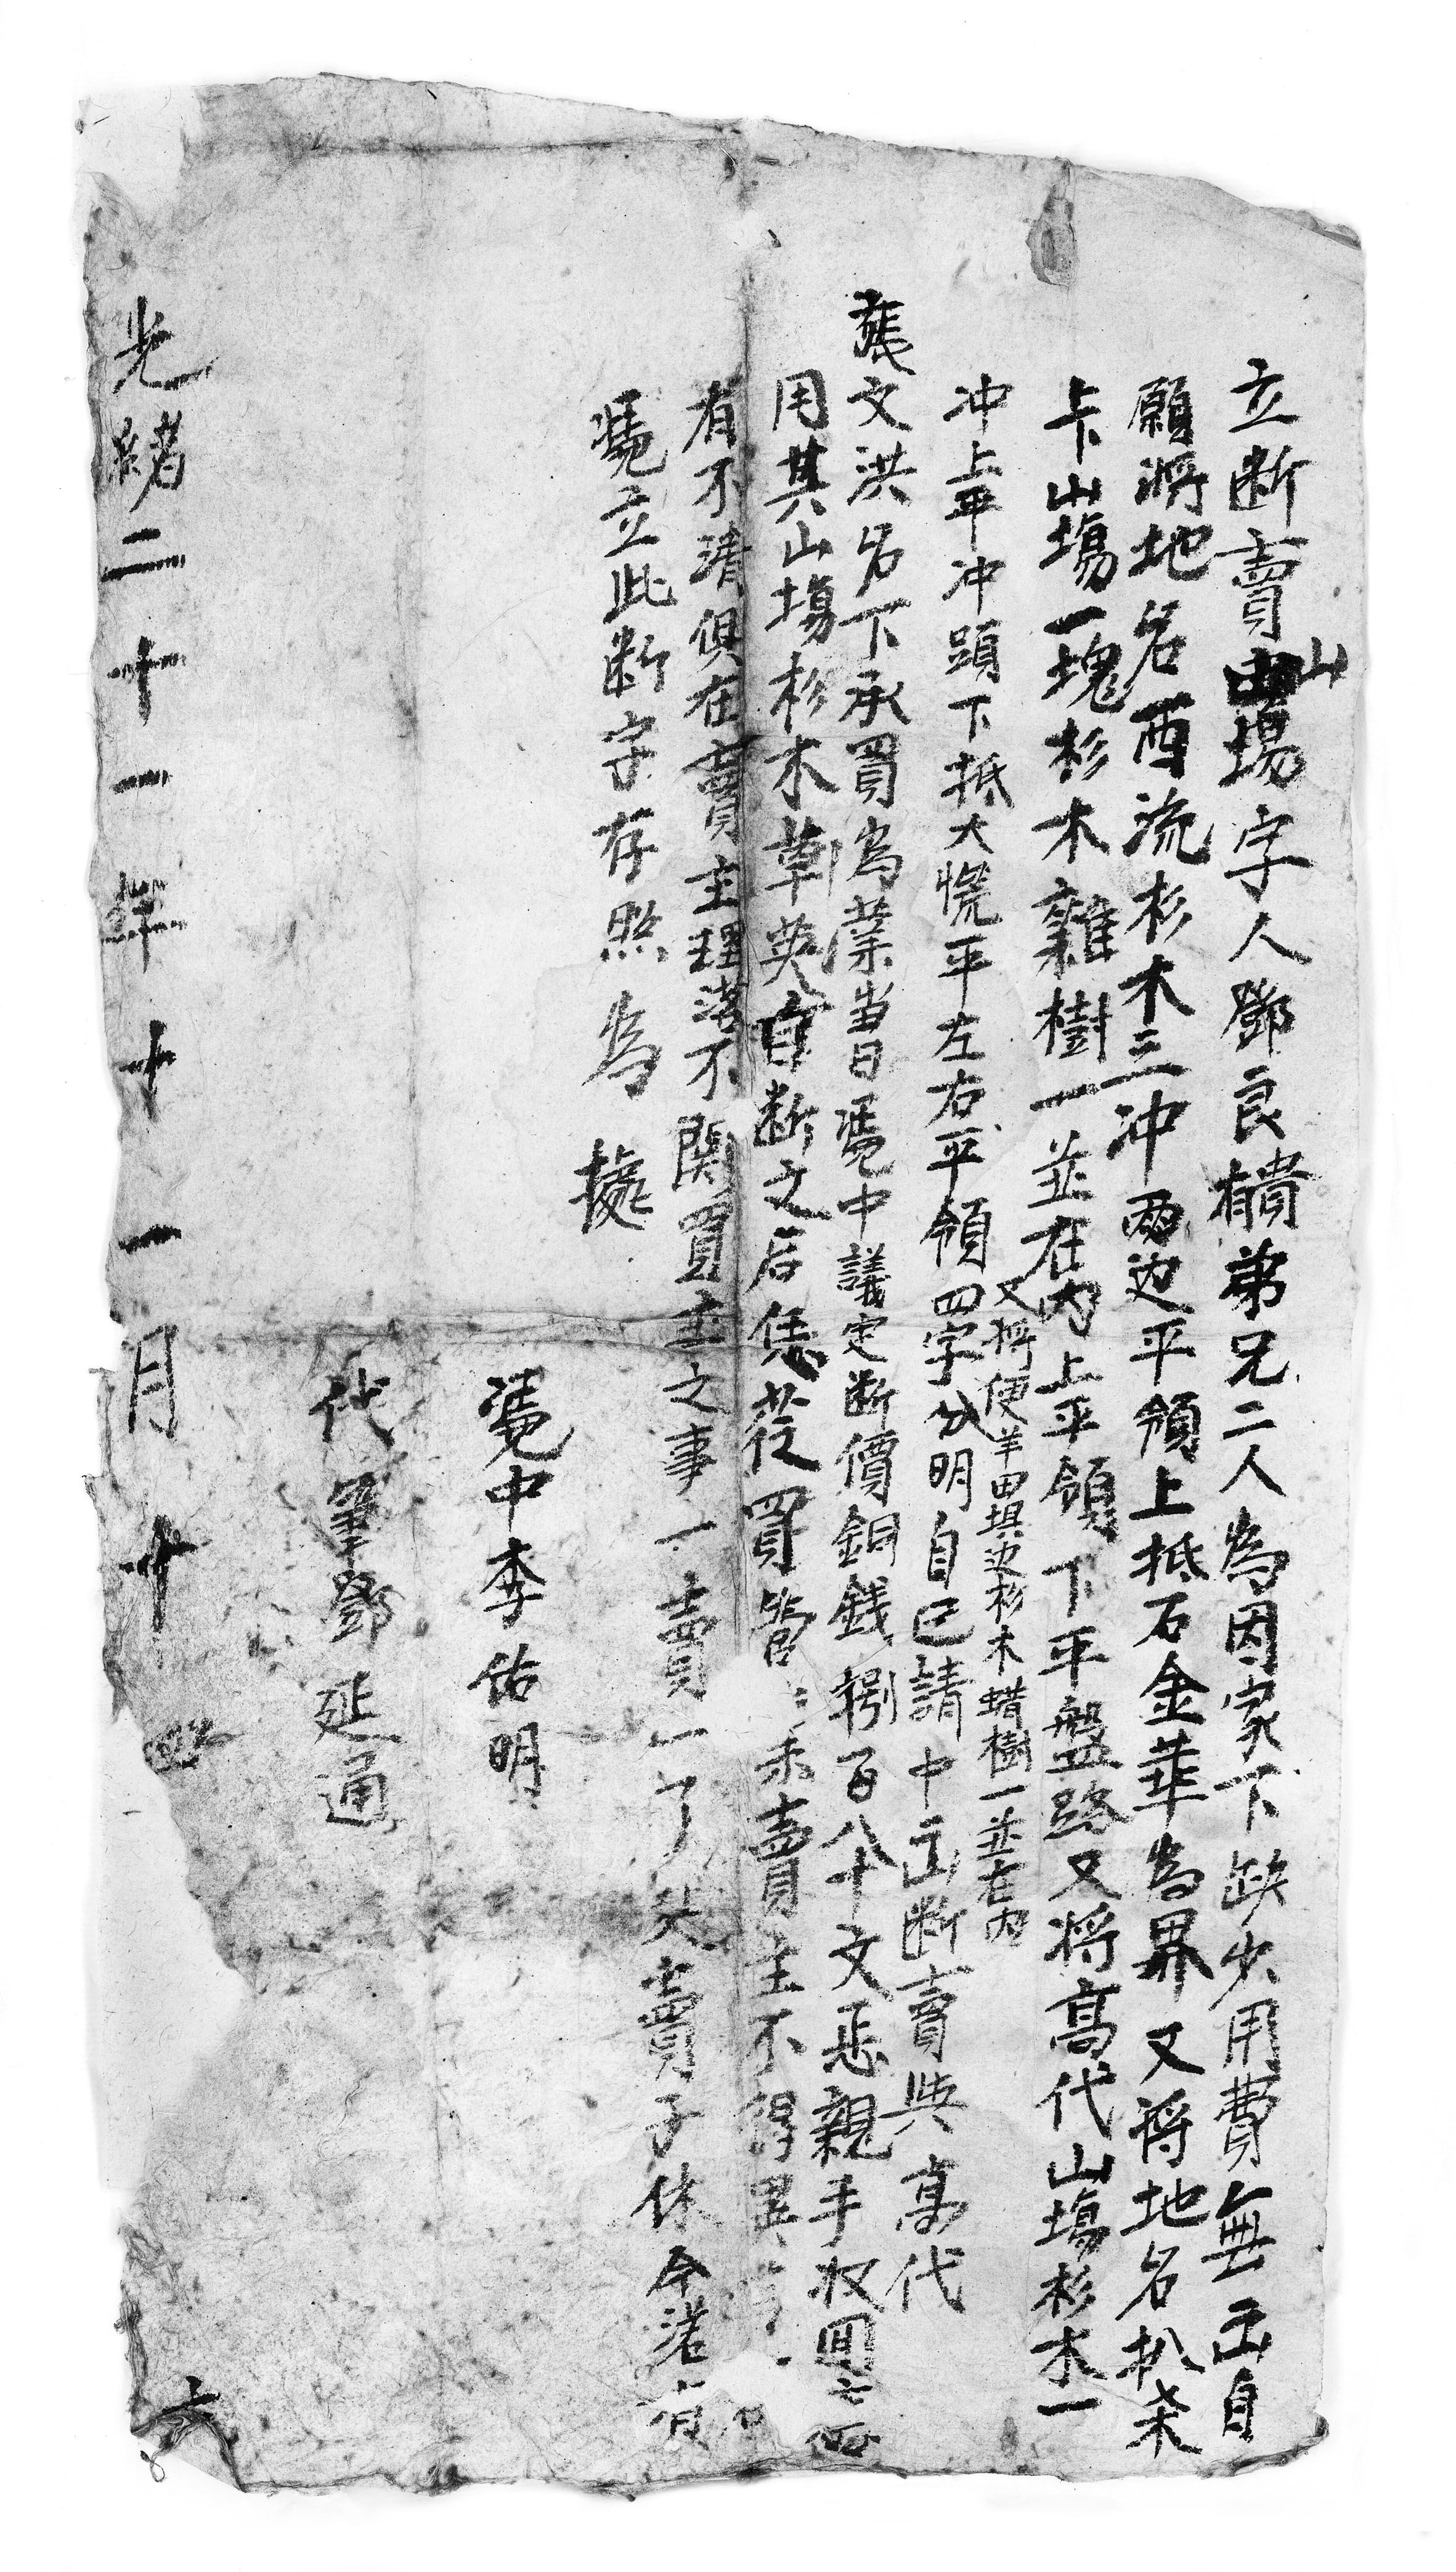 立断賣山塲字人鄧良樻弟兄二人為因家下缺少用費無出自
願將地名酉流杉木三冲兩边平領上抵石金華為界又將地名扒朩
卡山塲一塊杉木雜樹一並在内上平領下平盤路又將高代山塲杉木一
又將便羊田垻边杉木蜡樹一並在内
冲上平冲頭下抵大慌平左右平領四字分明自己請中正断賣與高代
龔文洪名下承買為業当日凴中議定断價銅錢捌百八十文恁親手収囬
用其山塲杉木草英自断之后恁從買管賣主不得異
有不清俱在賣主理落不関買主之事一賣一了父賣子休今若有
凴立此断字存照為據
凴中李佑明
代筆鄧延通
光緒二十一年十一月廿四 立